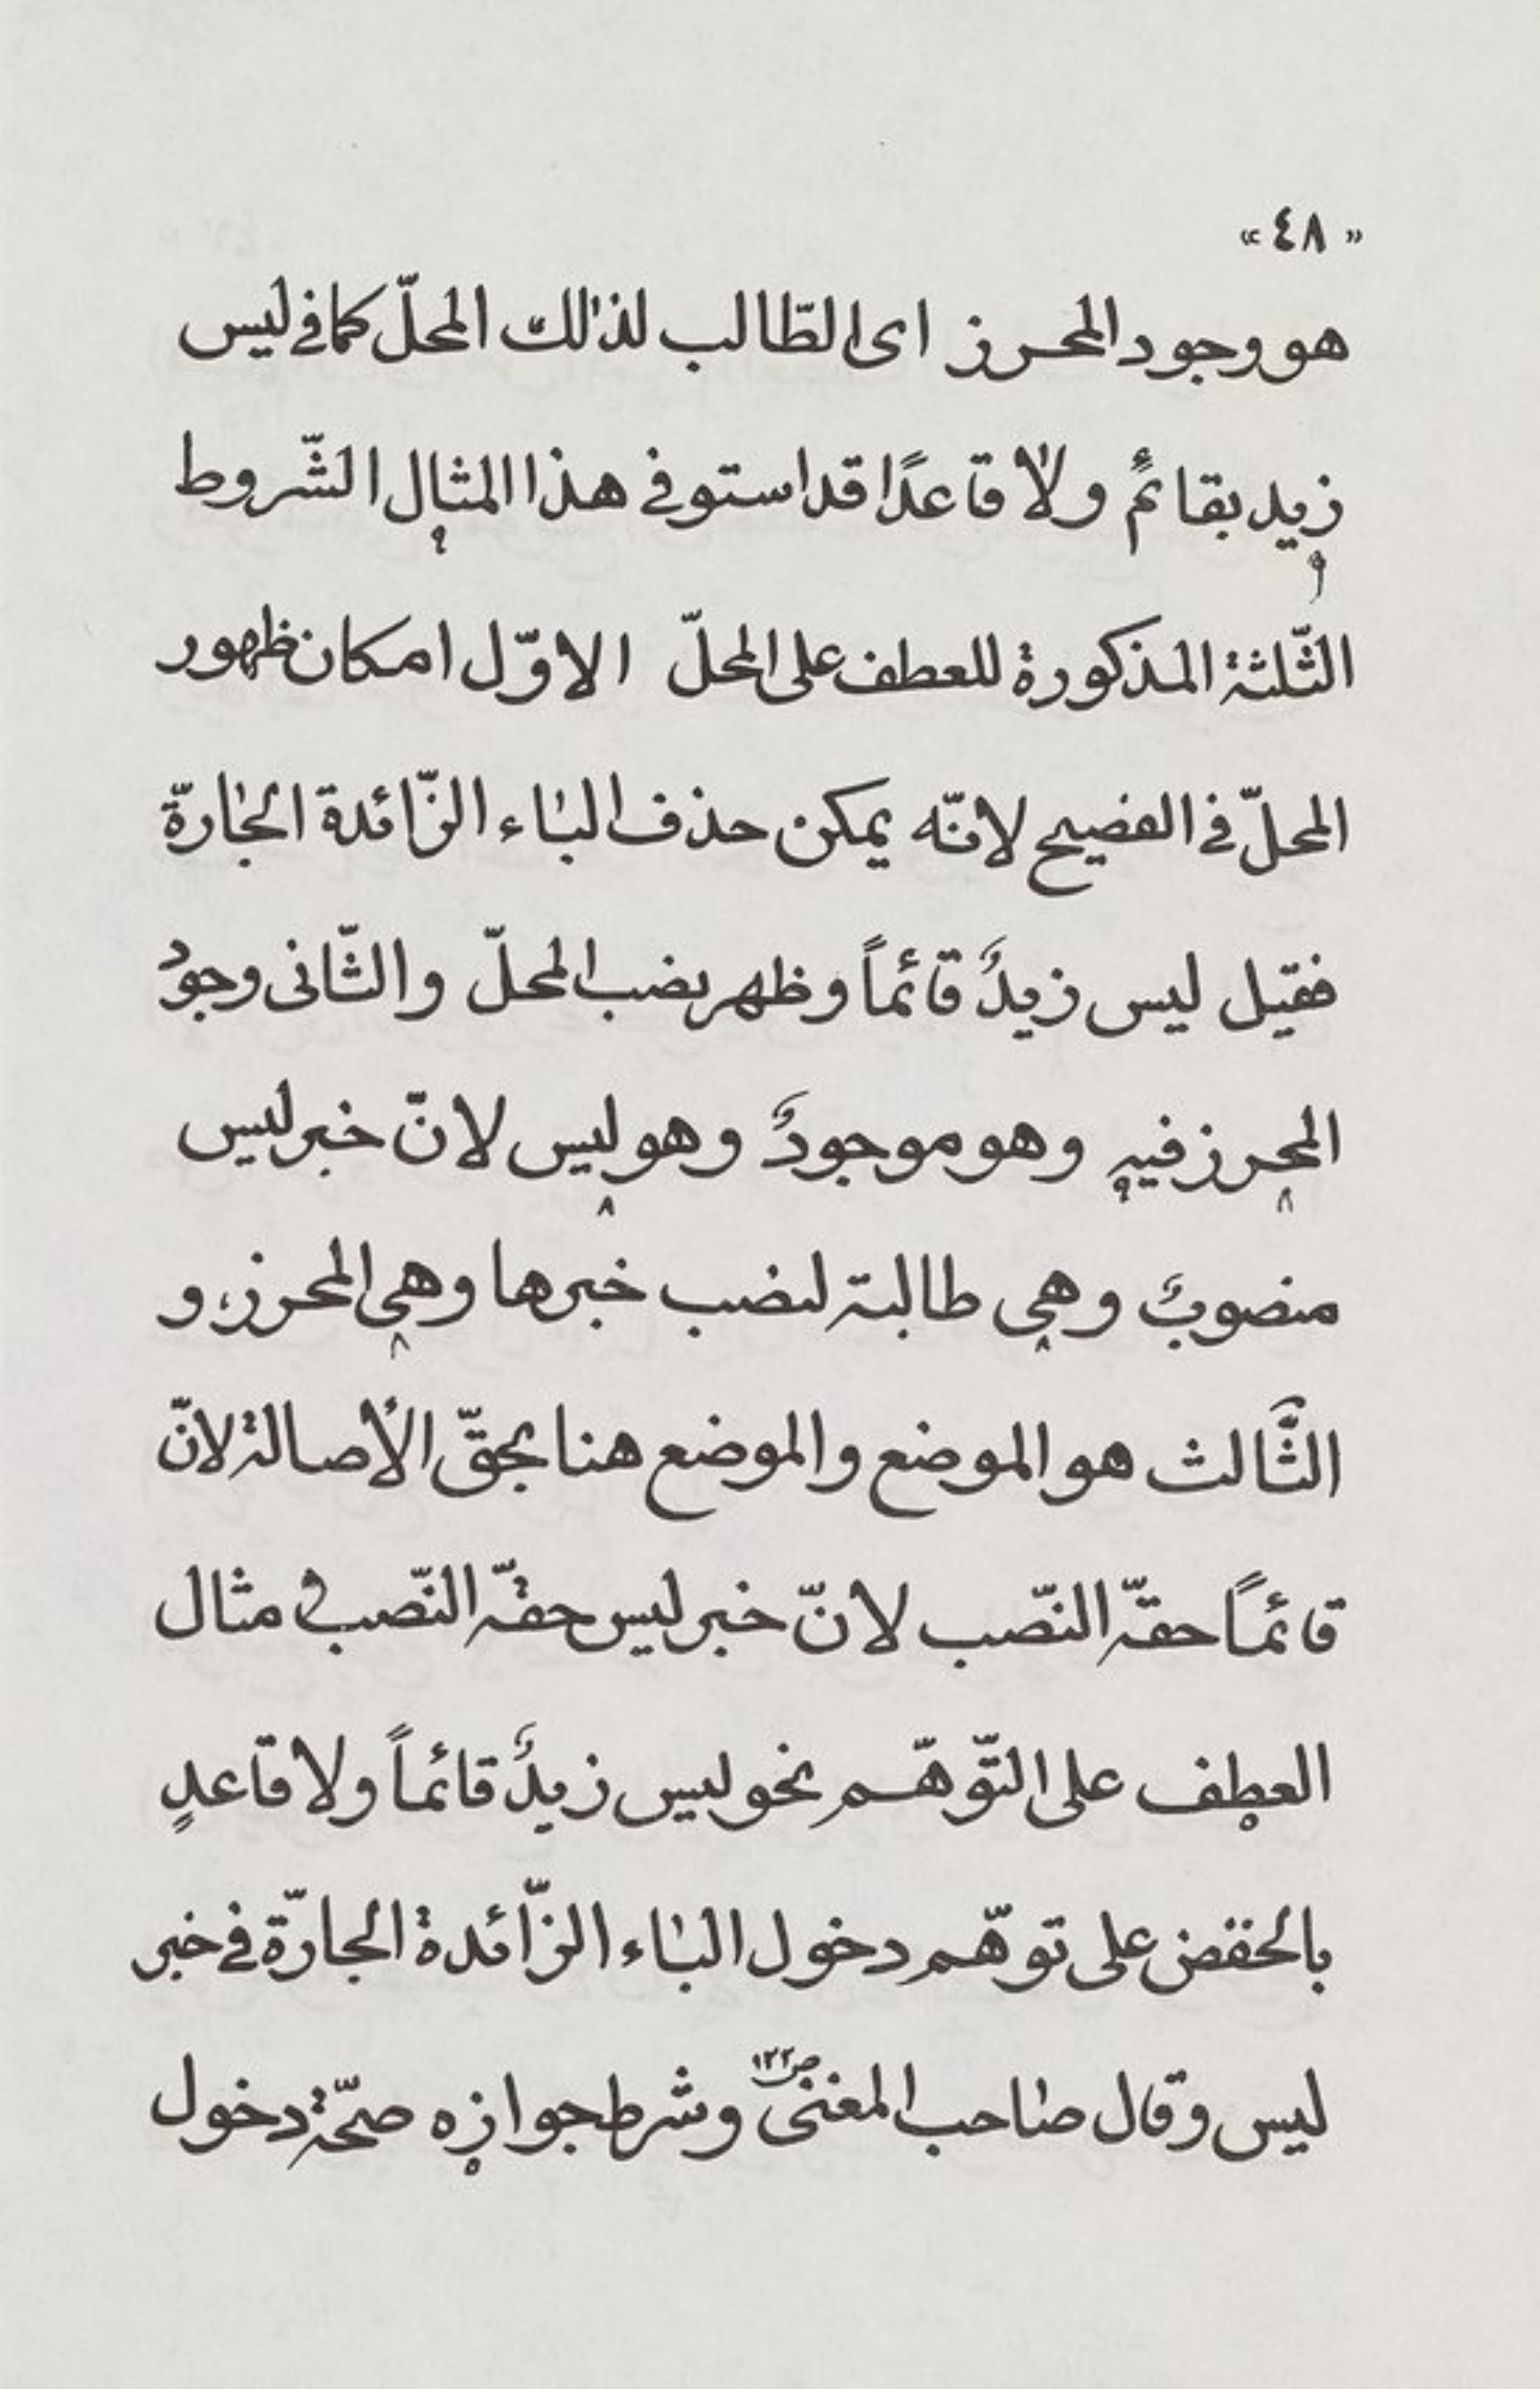 «٤٨»
هو وجود المحرز اى الطّالب لذٰلك المحلّ كما في ليس
زيد بقائمٍ ولا قاعدًا قد استوفي هذا المثال الشّروط
الثّلثة المذكورة للعطف على المحلّ الاوّل امكان ظهور
المحلّ في الفصيح لانّه يمكن حذف الباء الزّائدة الجارّة
فقيل ليس زيدٌ قائماً وظهر نصب المحلّ والثّانى وجود
المحرز فيه وهو موجودٌ وهو ليس لانّ خبر ليس
منصوبٌ وهى طالبة لنصب خبرها وهى المحرز، و
الثَّالث هو الموضع والموضع هنا بحقّ الأصالة لانّ
قائماً حقّه النّصب لانّ خبر ليس حقّه النّصب فى مثال
العطف على التّوهّم نحو ليس زيدٌ قائماً ولا قاعدٍ
بالخفض على توهّم دخول الباء الزّائدة الجارّة في خبر
ليس وقال صاحب المغنى ص١٢٢ وشرط جوازه صحّة دخول